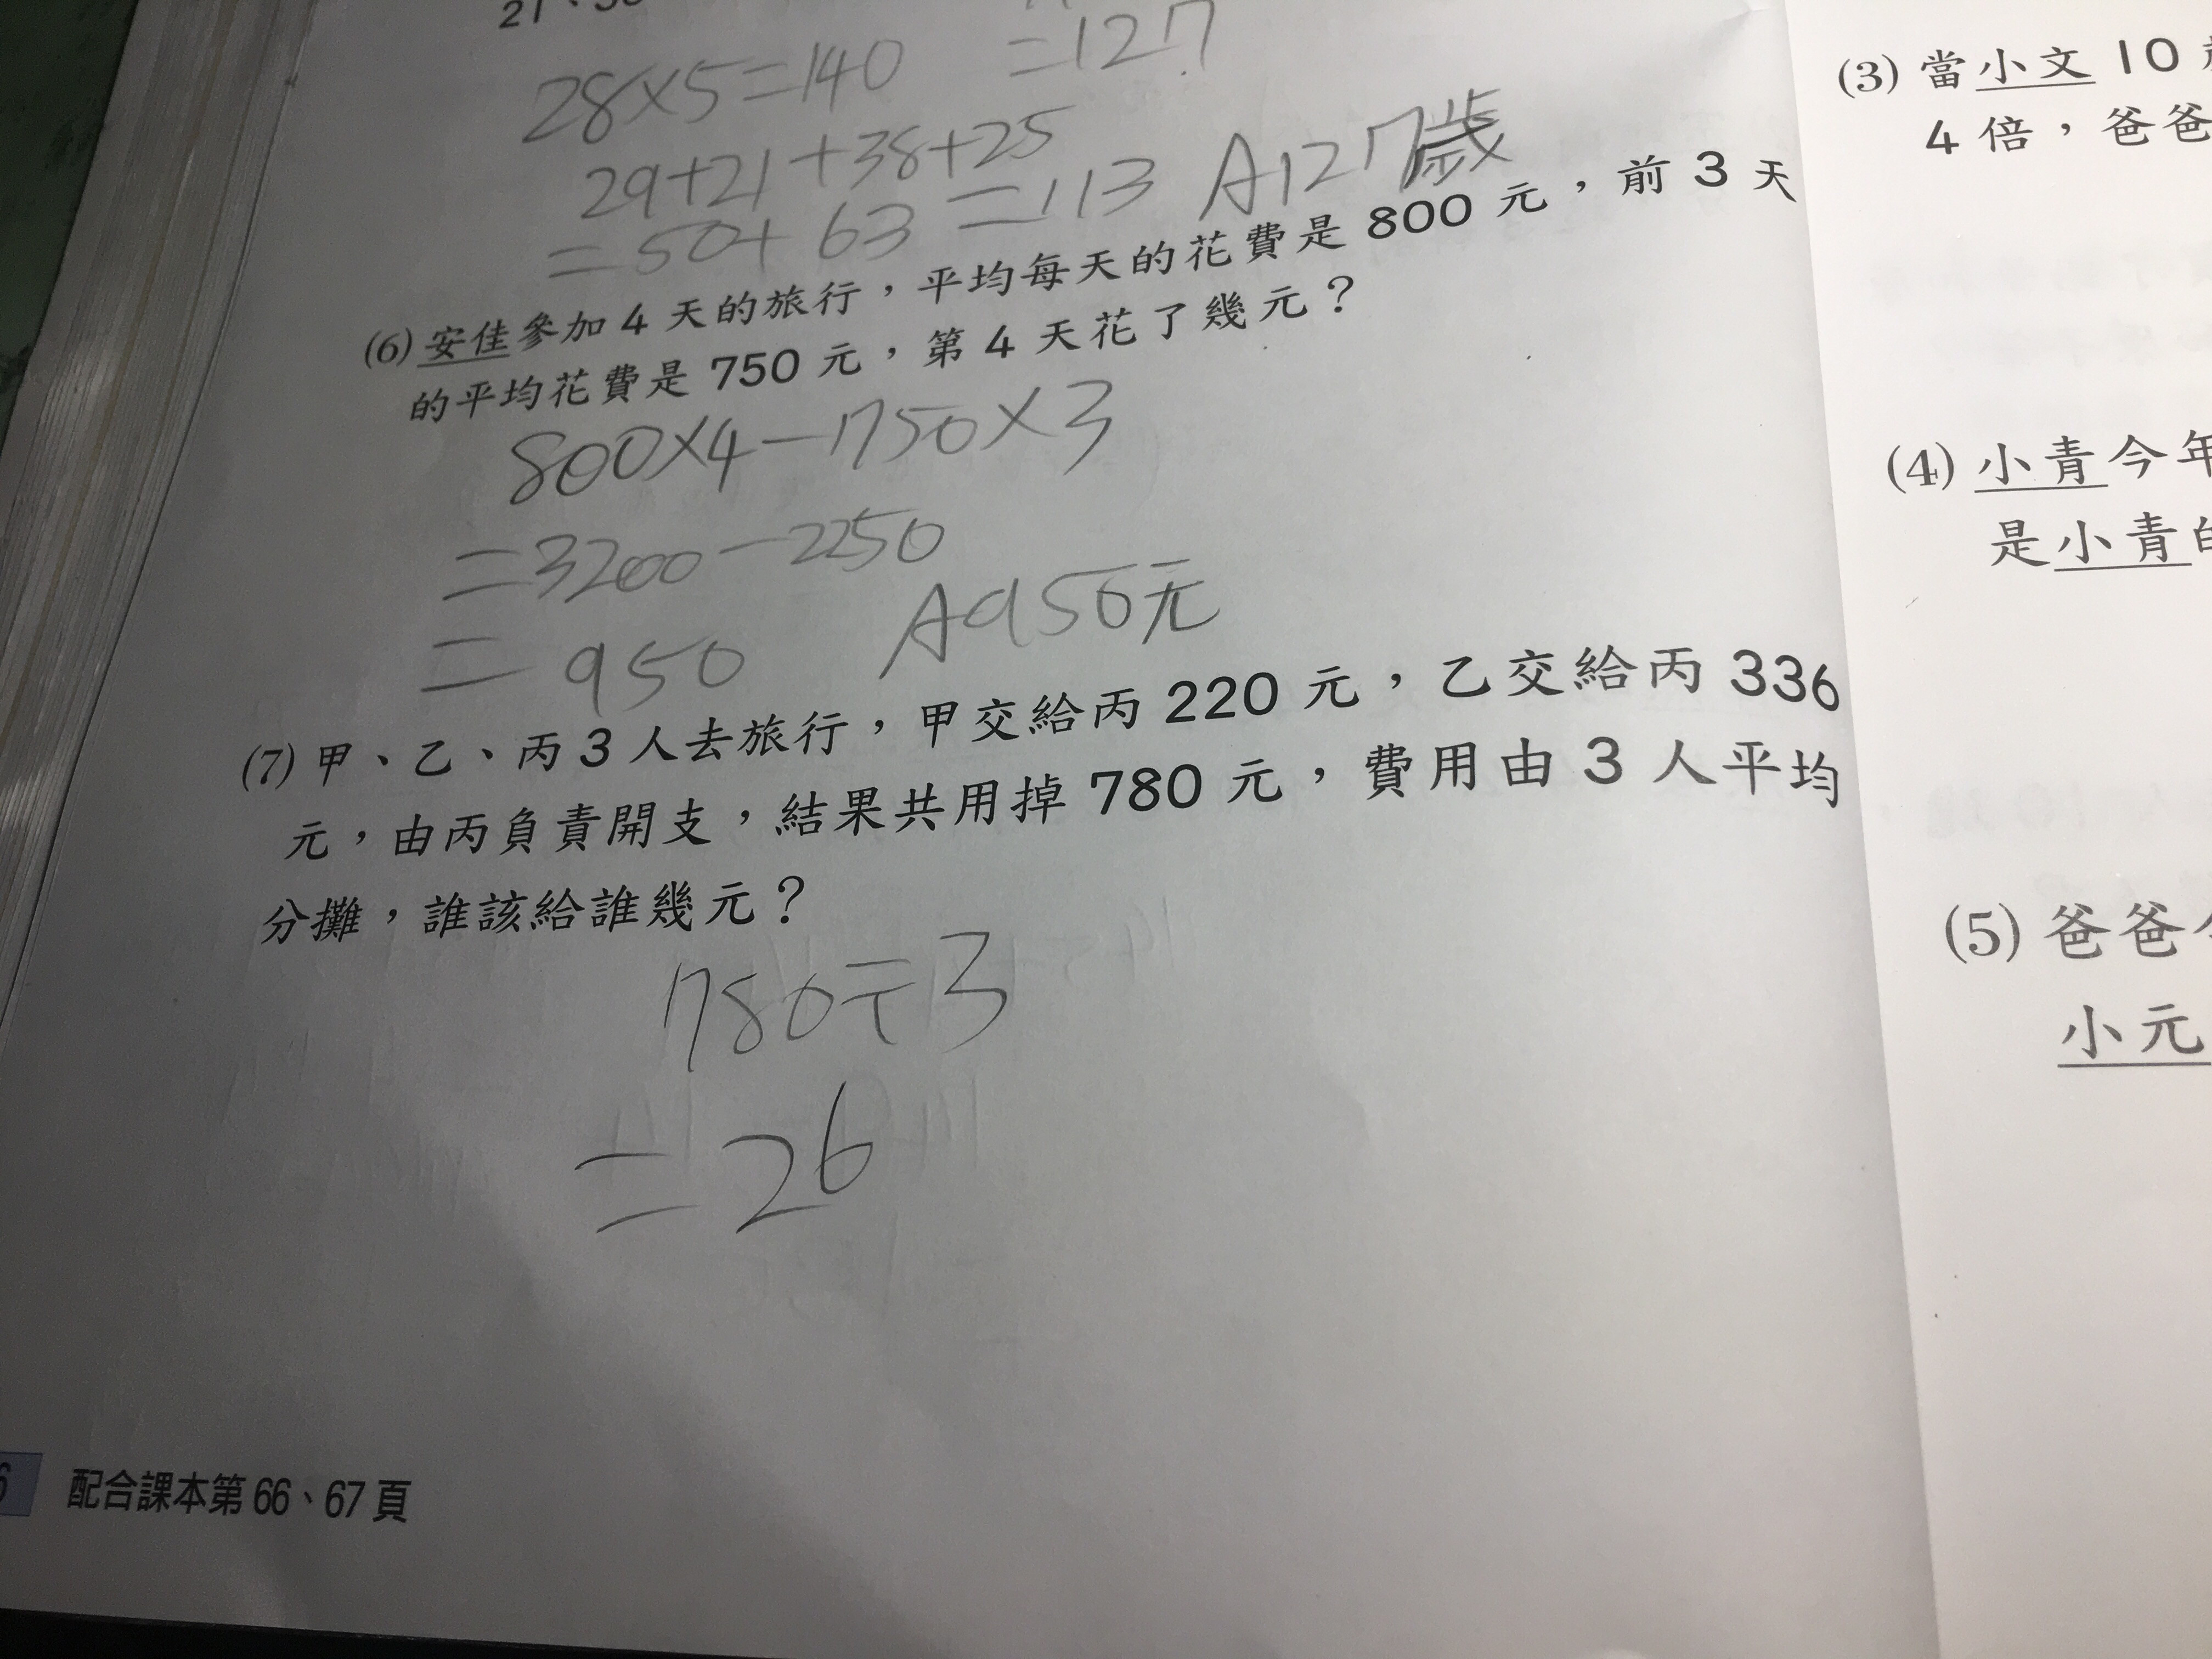 28×5=140
=127
29+21+38+25
=50+63=113 A127歲
(6) 安佳參加 4 天的旅行，平均每天的花費是 800 元，前 3 天
的平均花費是 750 元，第 4 天花了幾元？
800×4-750×3
=3200-2250
=950 A950元
(7) 甲、乙、丙 3 人去旅行，甲交給丙 220 元，乙交給丙 336
元，由丙負責開支，結果共用掉 780 元，費用由 3 人平均
分攤，誰該給誰幾元？
780÷3
=26
6 配合課本第 66、67 頁
(3) 當小文 10
4 倍，爸爸
(4) 小青今年
是小青的
(5) 爸爸
小元